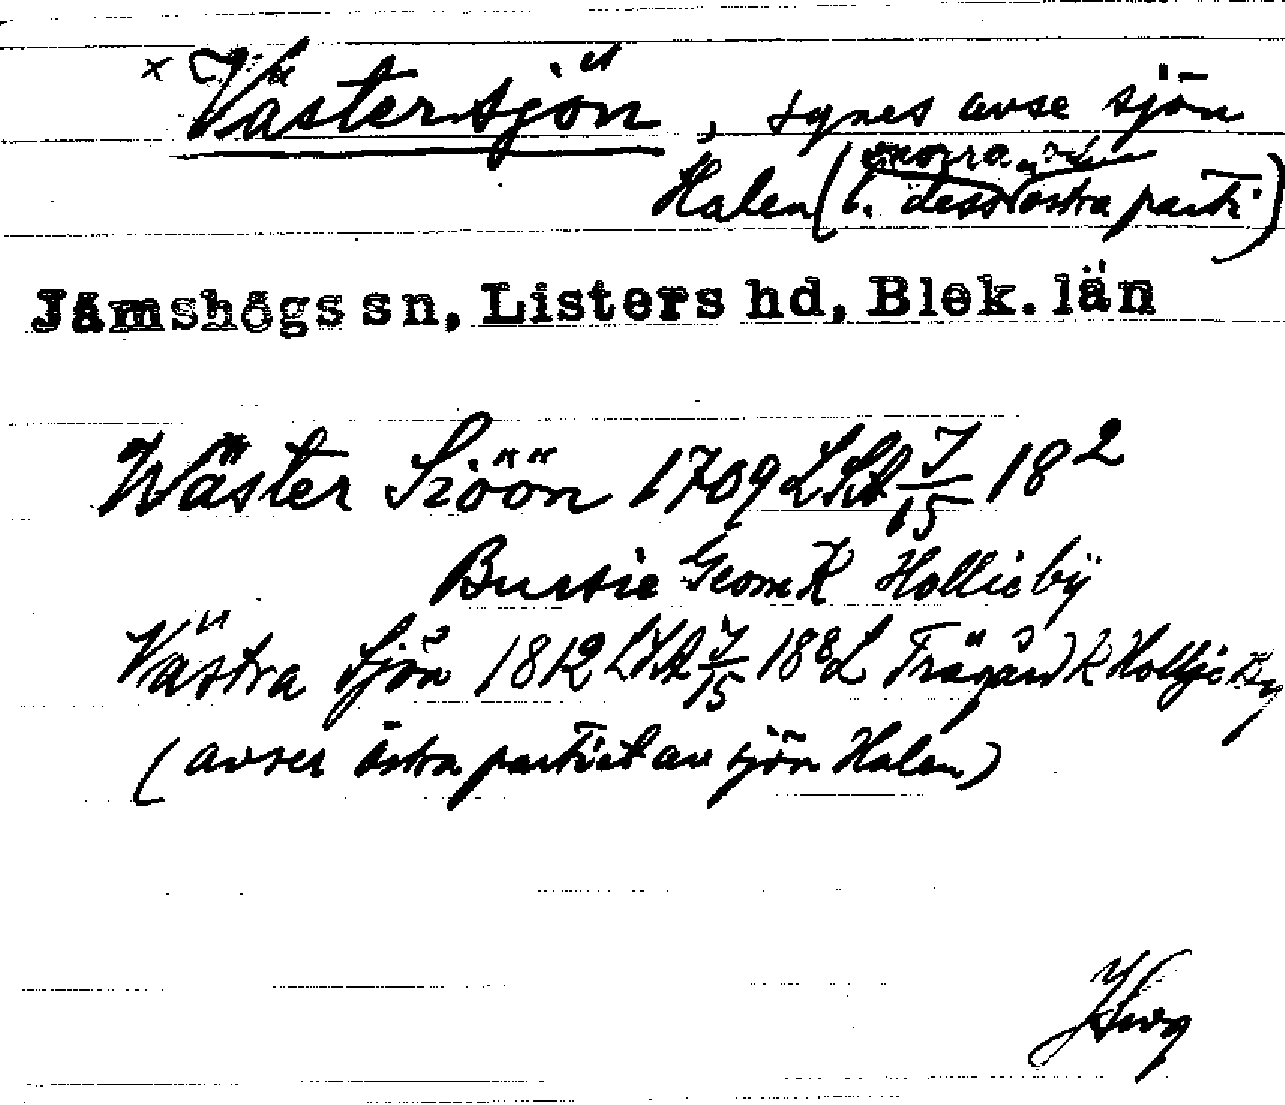 x Västersjön, synes avse sjön
norra och
Halen (l. dess östra parti)
Jämshögs sn, Listers hd, Blek. län
Wäster Siöön 1709 LSA J/15 18²
Bursie GeomK Hollieby
Västra Sjön 1812 LSA J/15 18 L Trägård K Holljeby
(avser östra partiet av sjön Halen)